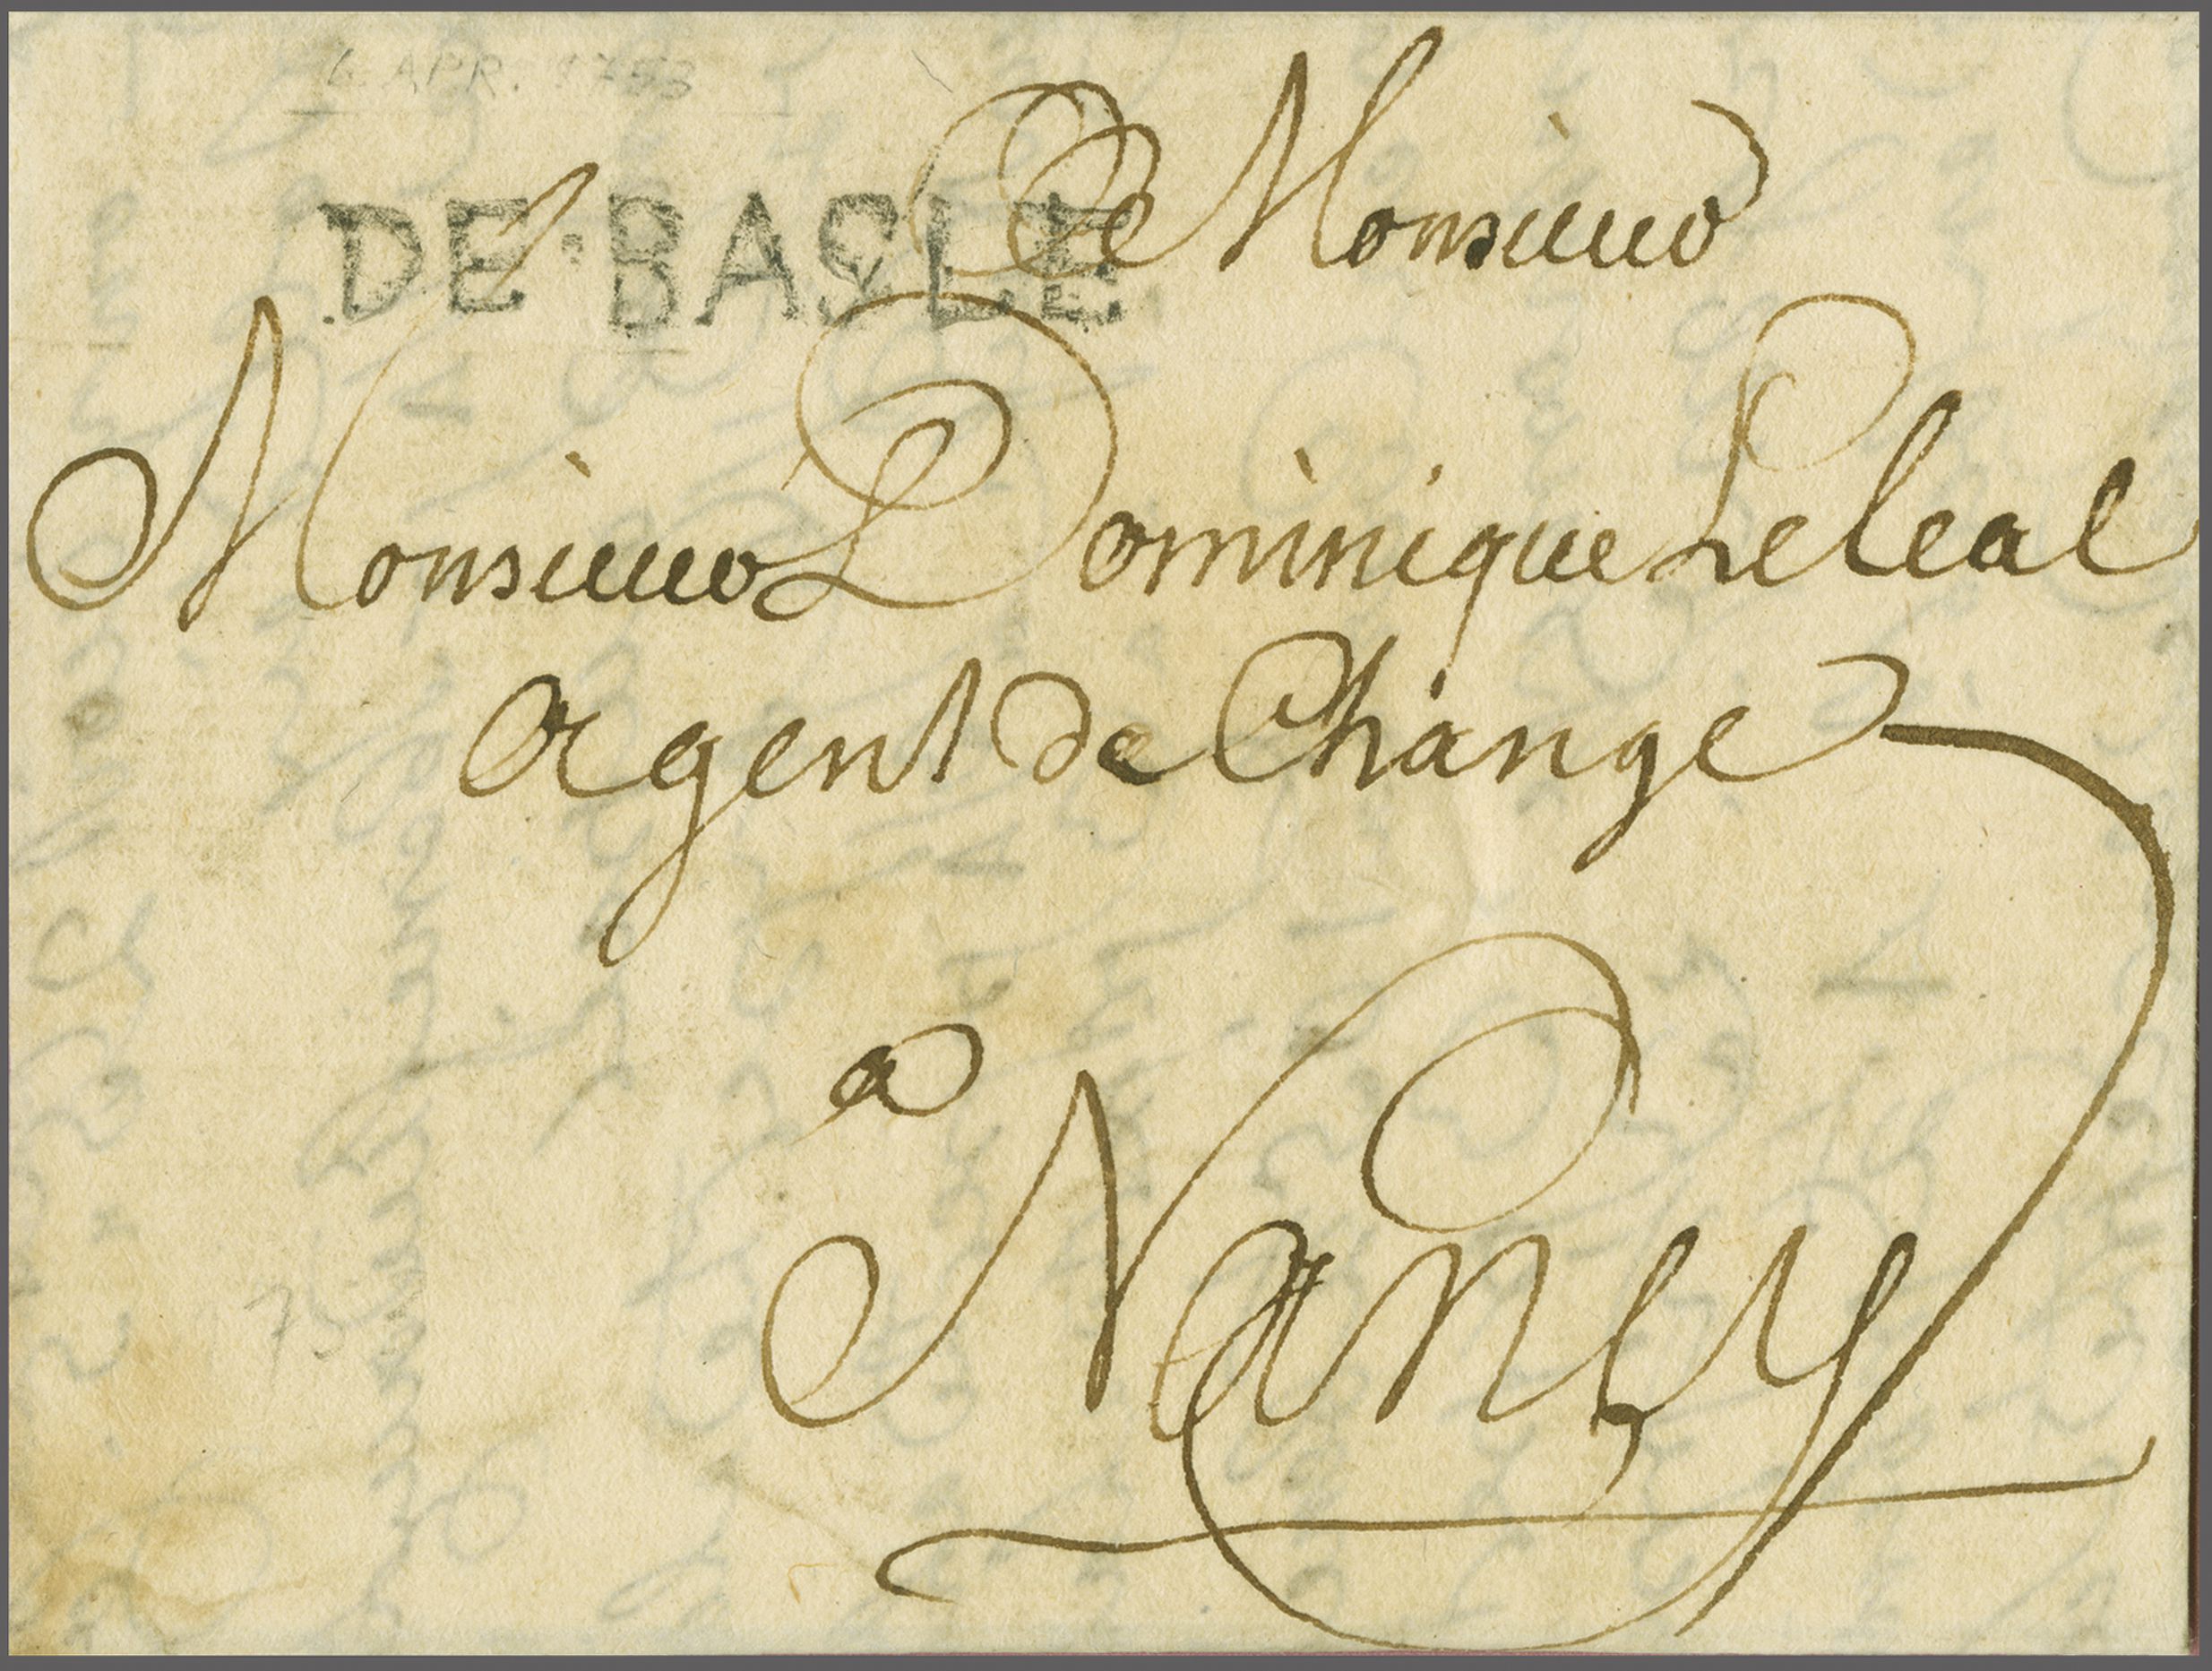 6 APR. 1753
DE·BASLE.
De Monsieur
Monsieur Dominique Leleal
Agent de Change
a
Nancy